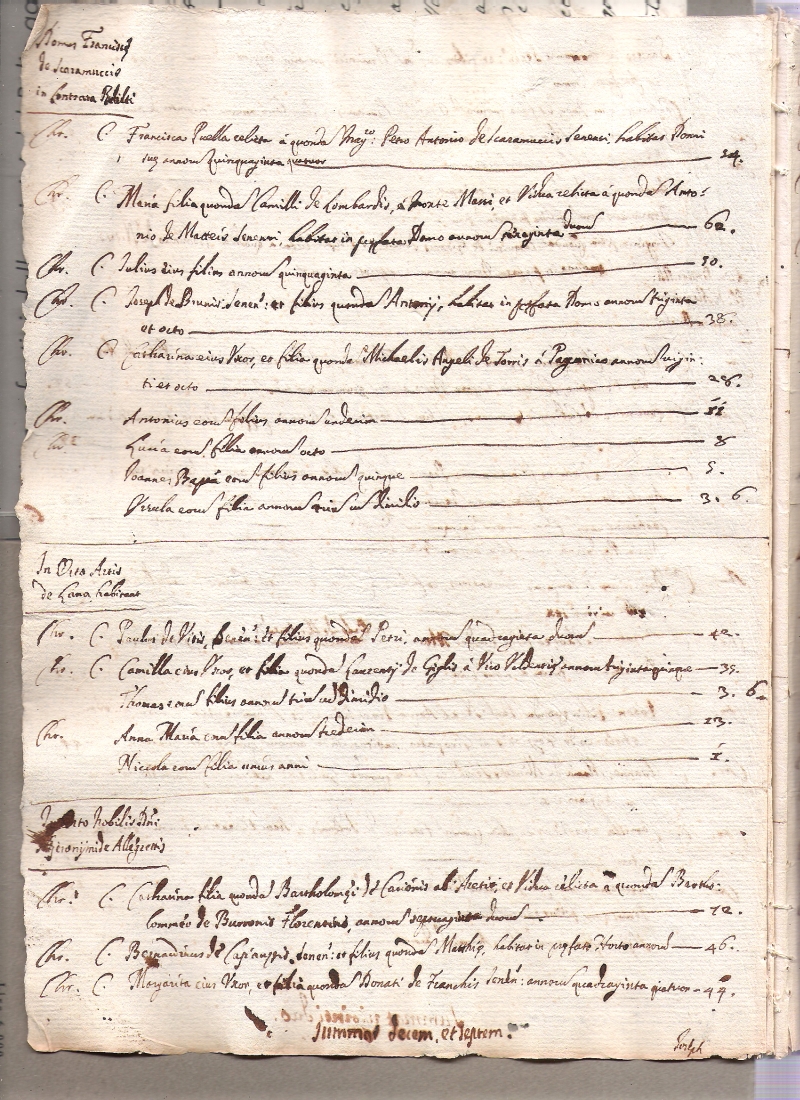 Domus Francisci
de Scaramuccis
in Contrara
Chr. C. Francisca Puella relicta à quonda Mag.co: Petro Antonio de Scaramuccis Senensi, habitas Domi
suę annorum quinquaginta quatuor 54.
Chr. C. Maria filia quonda Camilli de Lombardis, à Monte Massi, et Vidua relicta à quonda Anto:
nio de Matteis Senensi habitat in Domo annorum duorum 62.
Chr. C. Iulius eius filius annorum quinquaginta 50.
Chr. C. Ioseph de Brunis Senens: et filius quonda Antonij, habitat in Domo annorum triginta
et octo 38.
Chr. C. Catharina eius Uxor, et filia quonda Michaelis Angeli de Torris à Paganico annorum vigin:
ti et octo 28.
Chr. Antonius eorum filius annorum undecim 11
Chr. Lucia eorum filia annorum octo 8
Ioannes Bapta eorum filius annorum quinque 5.
Ursula eorum filia annorum trium cum dimidio 3. 6.
In Orto Artis
de Lana habitant
Chr. C. Paulus de Vitis, Senens: et filius quonda Petri, annorum quadraginta duorum 42.
Chr. C. Camilla eius Uxor, et filia quonda Laurentij de Giglis à Vico annorum triginta quinque 35.
Thomas eorum filius annorum trium cum dimidio 3. 6
Chr. Anna Maria eorum filia annorum tredecim 13.
Niccola eorum filia unius anni 1.
Orto Nobilis Dni
Hieronymi de Allegrettis
Chr. C. Catharina filia quonda Bartholomęi de ab Aretio, et Vidua relicta à quonda Bartho:
lommęo de Burronis Florentino, annorum septuaginta duorum 72.
Chr. C. Bernardinus de Senens: et filius quonda Matthię, habitat in Horto annorum 46.
Chr. C. Margarita eius Uxor, et filia quonda Donati de Franchis Senens: annorum quadraginta quatuor 44.
Summas decem, et septem.
Ioseph